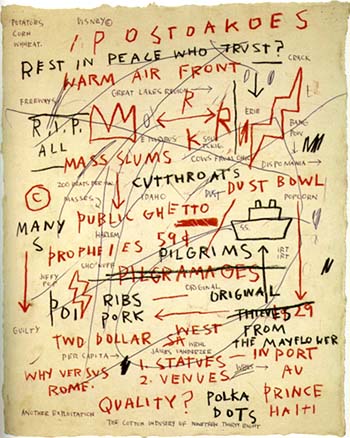 POTATOES
CORN
WHEAT.
DISNEY©
POSTOAKOES
REST IN PEACE WHO TRUST?
WARM AIR FRONT
CRACK
GREAT LAKES REGION
FREEWAYS
E
R
ERIE
R.I.P.
ALL
K
R
BANG
POW
MASS SLUMS
COWS FROM OHIO
DISPOMANIA
©
CUTTHROATS
DUST BOWL
MASSES
IDAHO
DUST
POPCORN
MANY
S
PUBLIC GHETTO
HARLEM
S.S.
PROPHEIES 59¢
PILGRIMS
IRT
IRT
JIFFY
POP
PILGRAMAGES
ORIGINAL
POI
RIBS
PORK
ORIGINAL
GUILTY
THIEVES
1829
TWO DOLLAR
WEST
FROM
THE MAYFLOWER
PER CAPITA
JAMES VANDERZEE
1. STATUES
IN PORT
WHY VERSUS
ROME.
2. VENUES
AU
PRINCE
QUALITY?
POLKA
DOTS
HAITI
ANOTHER EXPLOITATION
THE COTTON INDUSTRY OF NINETEEN THIRTY EIGHT